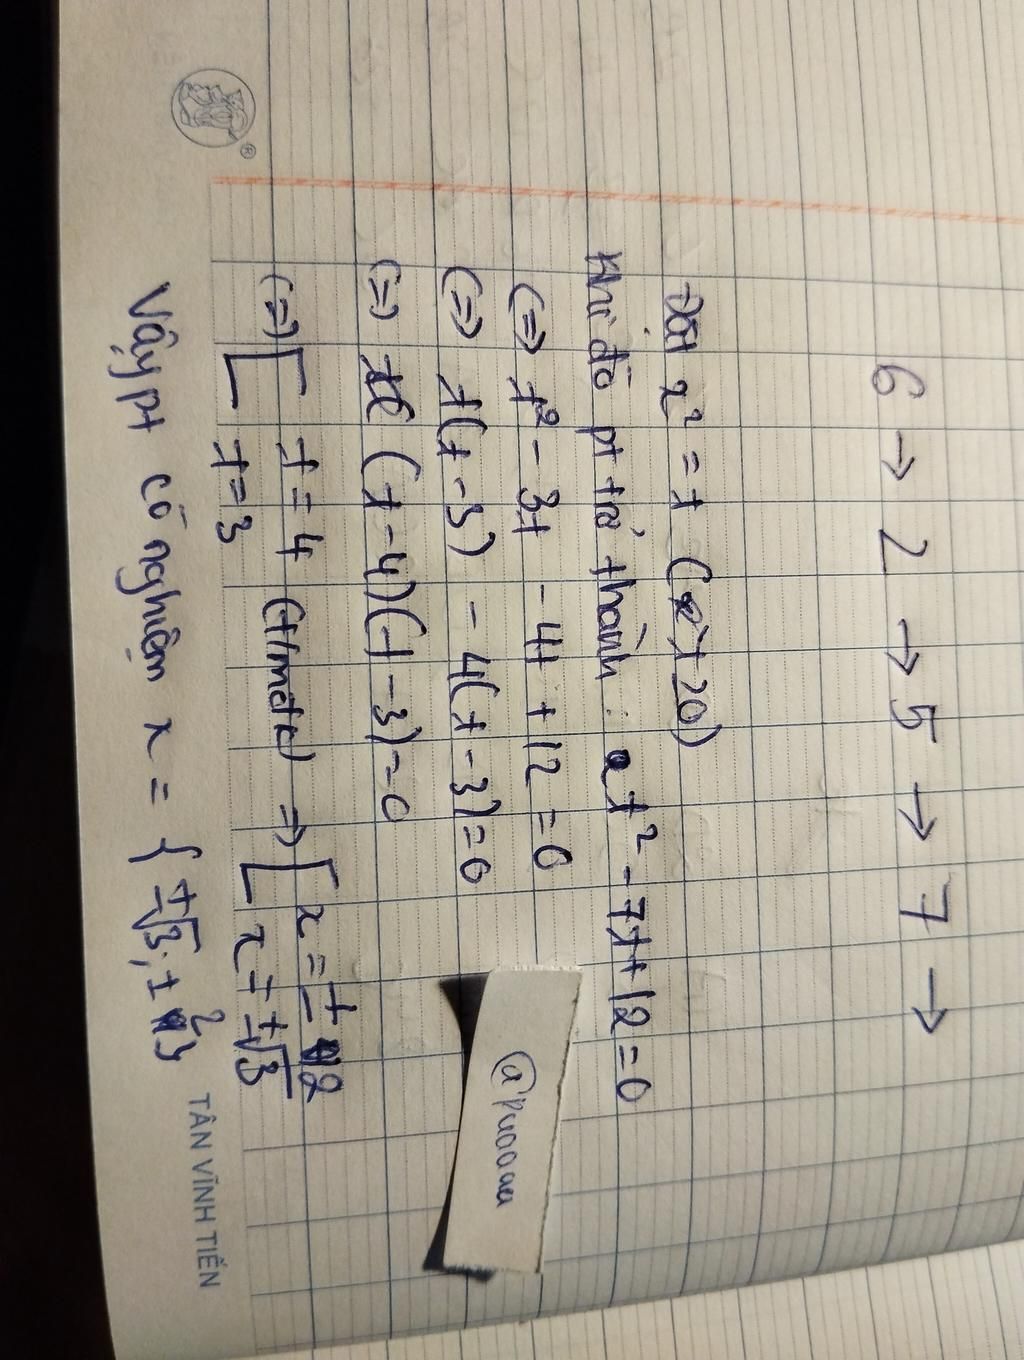 6 → 2 → 5 → 7 →
Đặt x² = t (t ≥ 0)
Khi đó pt trở thành: t² - 7t + 12 = 0
(=) t² - 3t - 4t + 12 = 0
(=) t(t - 3) - 4(t - 3) = 0
(=) (t - 4)(t - 3) = 0
(=) [ t = 4 (t/mđk) => [ x = ± 2
t = 3 x = ±√3
Vậy pt có nghiệm x = {±√3; ± 2}
@puoooaa
TÂN VĨNH TIẾN
®